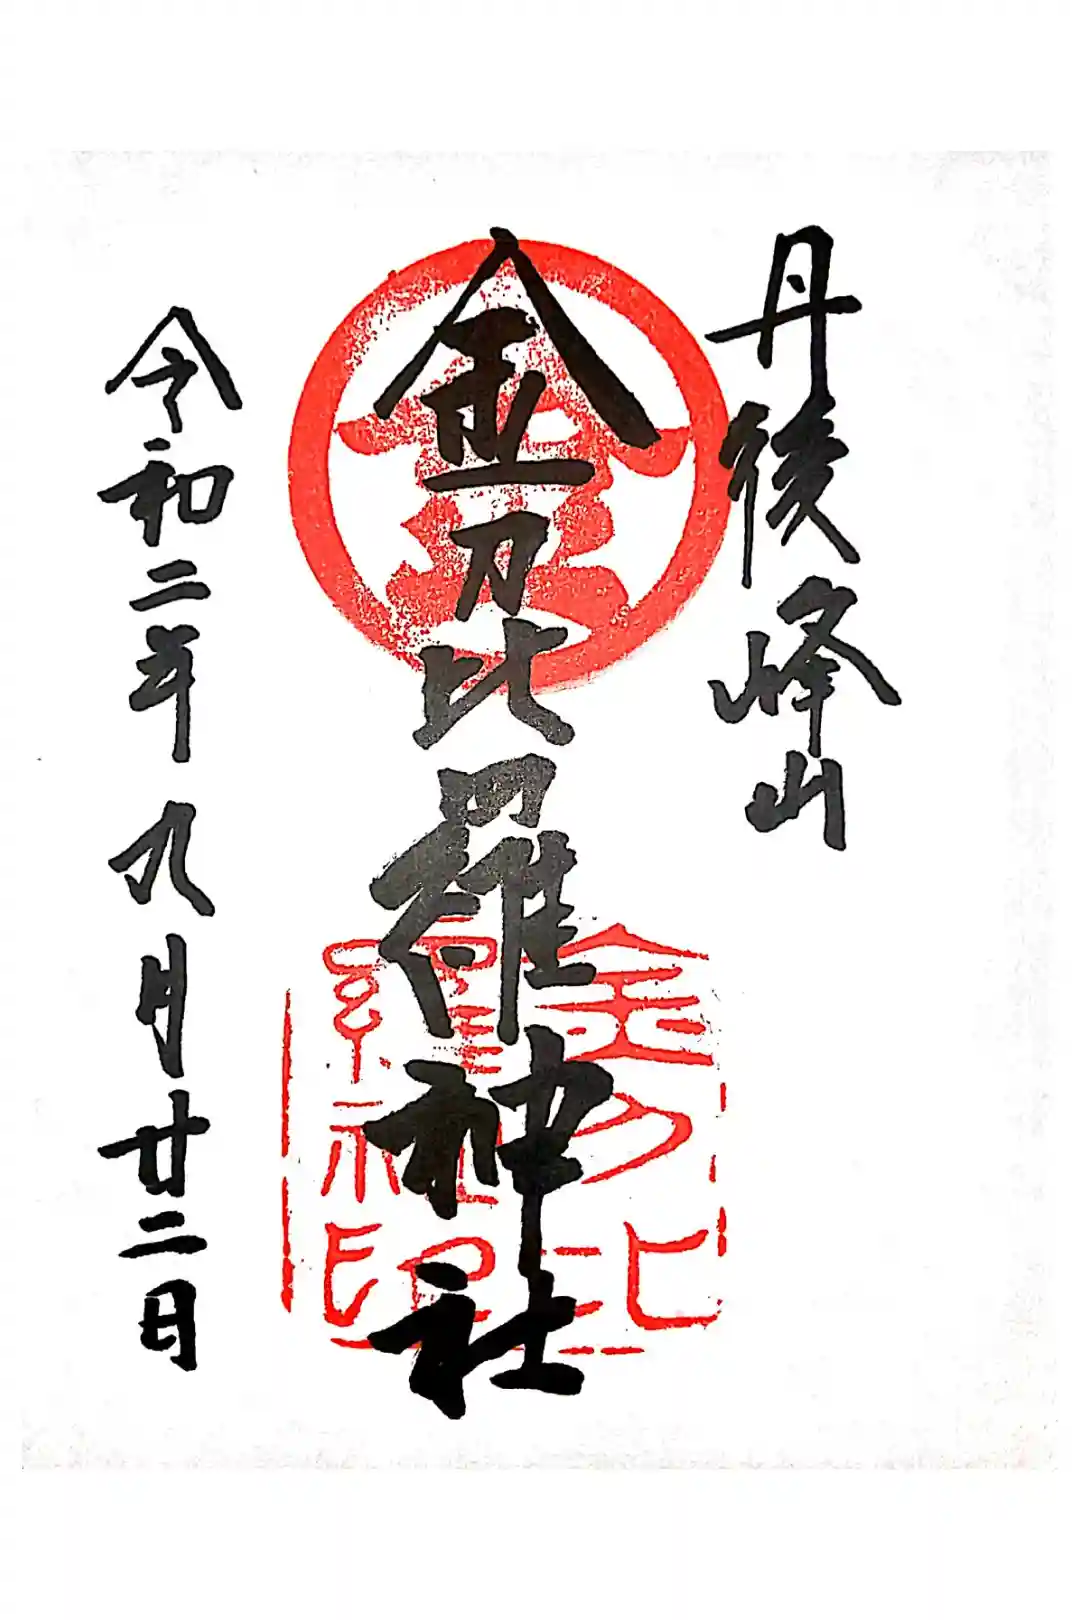 丹後峰山
金
金刀比羅神社
金刀比羅神社印
令和二年九月廿二日